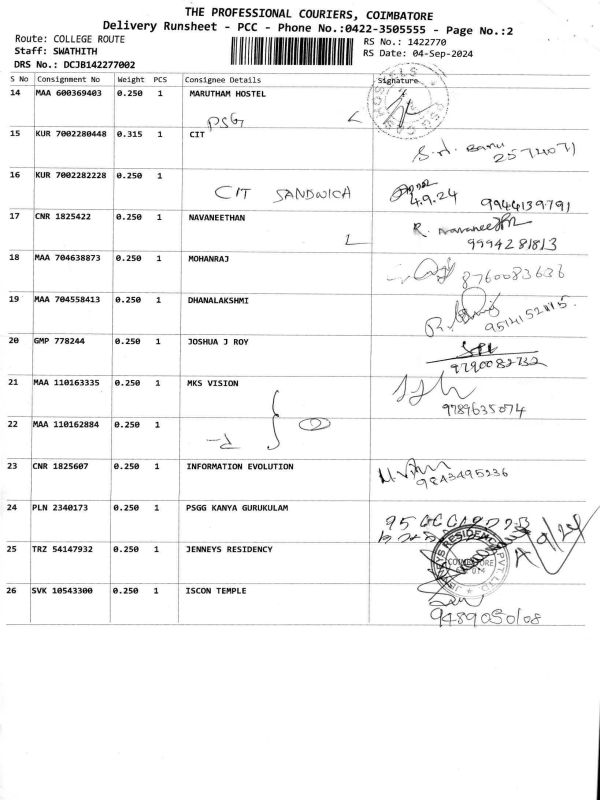 THE PROFESSIONAL COURIERS, COIMBATORE
Delivery Runsheet - PCC - Phone No.:0422-3505555 - Page No.:2
Route: COLLEGE ROUTE
RS No.: 1422770
Staff: SWATHITH
RS Date: 04-Sep-2024
DRS No.: DCJB142277002
S No Consignment No Weight PCS Consignee Details Signature
14 MAA 600369403 0.250 1 MARUTHAM HOSTEL
PSG
15 KUR 7002280448 0.315 1 CIT
16 KUR 7002282228 0.250 1
CIT SANDWICH
4.9.24 9944139791
17 CNR 1825422 0.250 1 NAVANEETHAN
9994281813
18 MAA 704638873 0.250 1 MOHANRAJ
8760083636
19 MAA 704558413 0.250 1 DHANALAKSHMI
20 GMP 778244 0.250 1 JOSHUA J ROY
9790082732
21 MAA 110163335 0.250 1 MKS VISION
9789635074
22 MAA 110162884 0.250 1
23 CNR 1825607 0.250 1 INFORMATION EVOLUTION
9843495236
24 PLN 2340173 0.250 1 PSGG KANYA GURUKULAM
25 TRZ 54147932 0.250 1 JENNEYS RESIDENCY
COIMBATORE
26 SVK 10543300 0.250 1 ISCON TEMPLE
9489050108